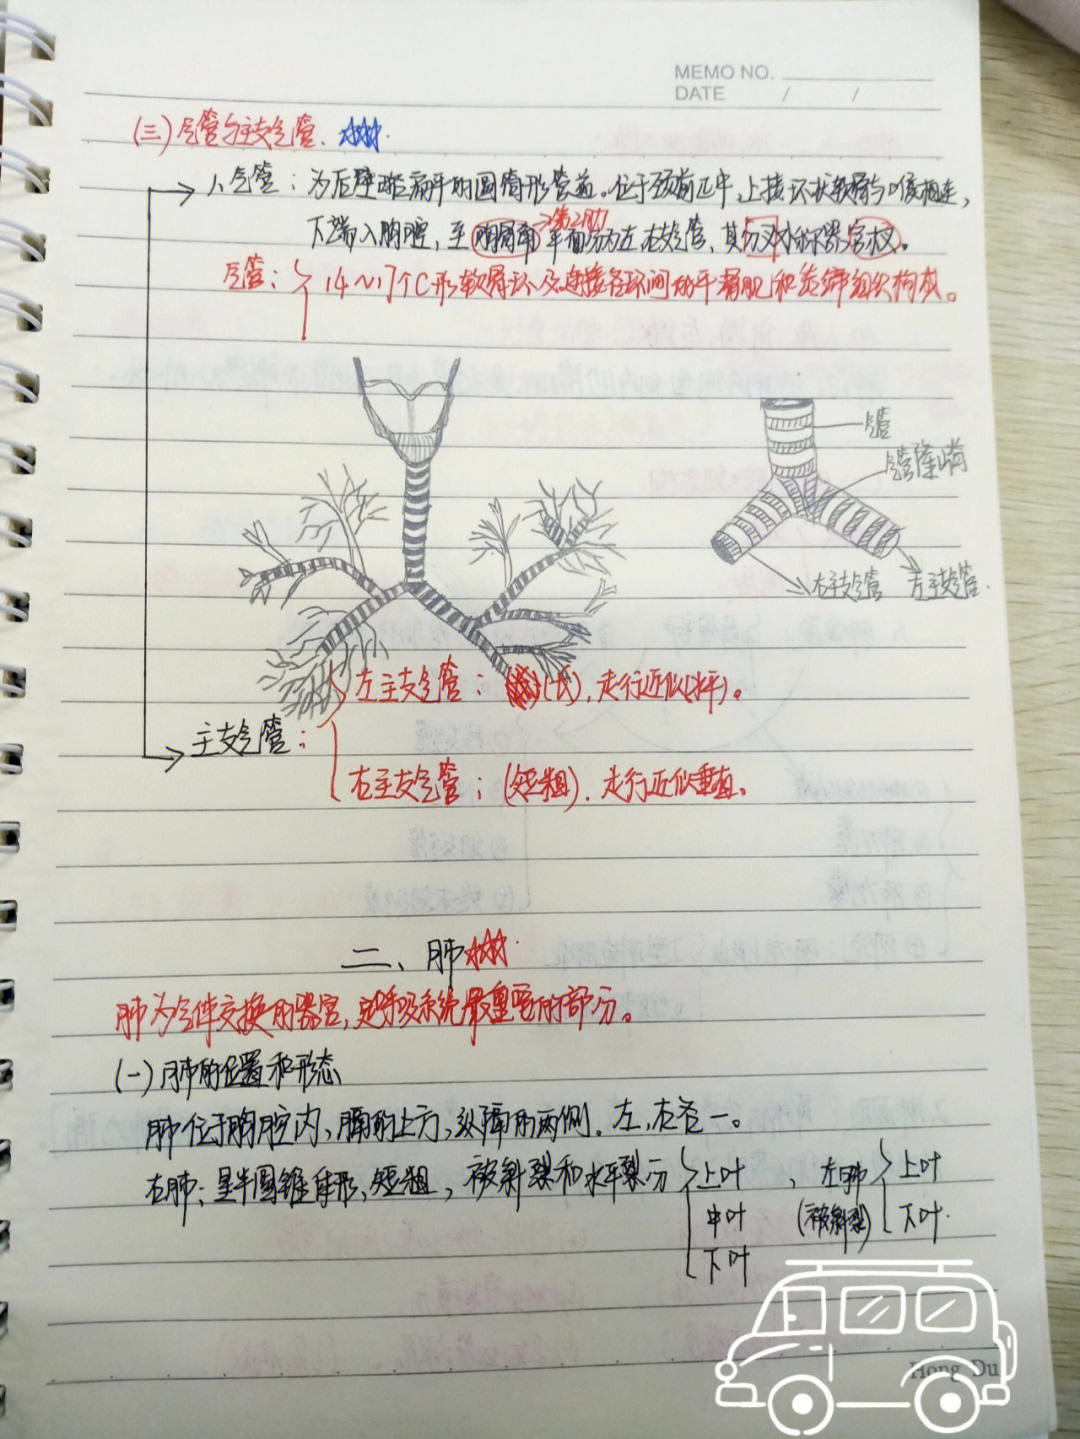 MEMO NO.
DATE / /
(三)气管与主支气管.
1、气管：为后壁略扁平的圆筒形管道。位于颈前正中，上接环状软骨与喉相连，
→第2肋
下端入胸腔，至胸骨角平面分为左、右支气管，其分叉处称气管杈。
气管：14~17个C形软骨以及连接各环间的平滑肌和结缔组织构成。
气管
气管隆嵴
右主支气管 左主支气管.
左主支气管：(细长)，走行近似(水平)。
主支气管：
右主支气管：(短粗)，走行近似垂直。
二、肺
肺为气体交换的器官，是呼吸系统最重要的部分。
(一)肺的位置和形态
肺位于胸腔内，膈的上方，纵隔的两侧。左，右各一。
右肺：呈半圆锥体形，短粗，被斜裂和水平裂分 上叶 、左肺 上叶
中叶 (被斜裂) 下叶.
下叶
Hong Du